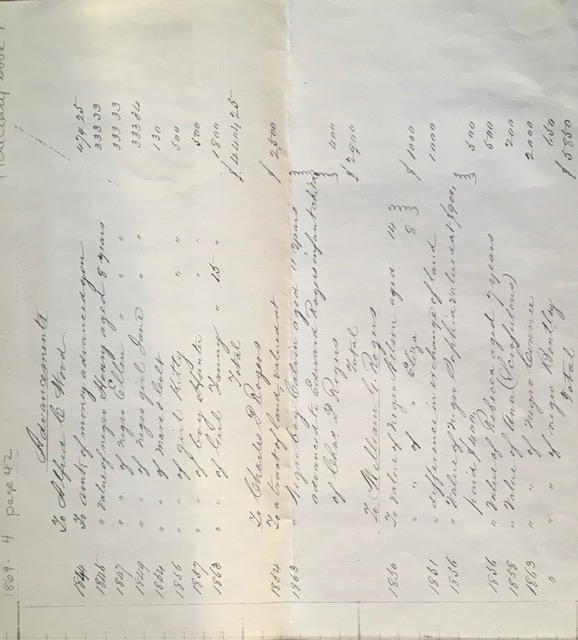 1869-4 page 42
Advancements
To Alfred C Wood
1844 To amt of money advanced you 474 25
1845 " Value of negro Henry aged 8 years 333 33
1847 " " of negro Ellen " " " 333 33
1849 " " of negro girl Jane " " 333 34
1854 " " of mare & Colt 130
1856 " " of girl Kitty " " 500
1857 " " of boy Hunter " " 500
1863 " " of Girl Fanny " 15 " 1800
Total $ 4404 25
To Charles P Rogers
1854 To a tract of land, valued at $ 2,500
1863 " Negro boy Calvin aged 11 years
advanced to Edward Rogers infant child
of Chas P Rogers 400
Total $ 2900
To William G. Rogers
1850 To value of negro Nelson aged 14
" " of " Eliza 8 $ 1000
1851 " difference in exchange of land 1000
1856 " Value of negro Sophia valued at $900,
paid $400, 500
1856 " Value of Rebecca aged 7 years 500
1858 " Value of Ann (Scrofulous) 200
1863 " " of negro Connie 2000
" " " of negro Bentley 650
Total $ 5850